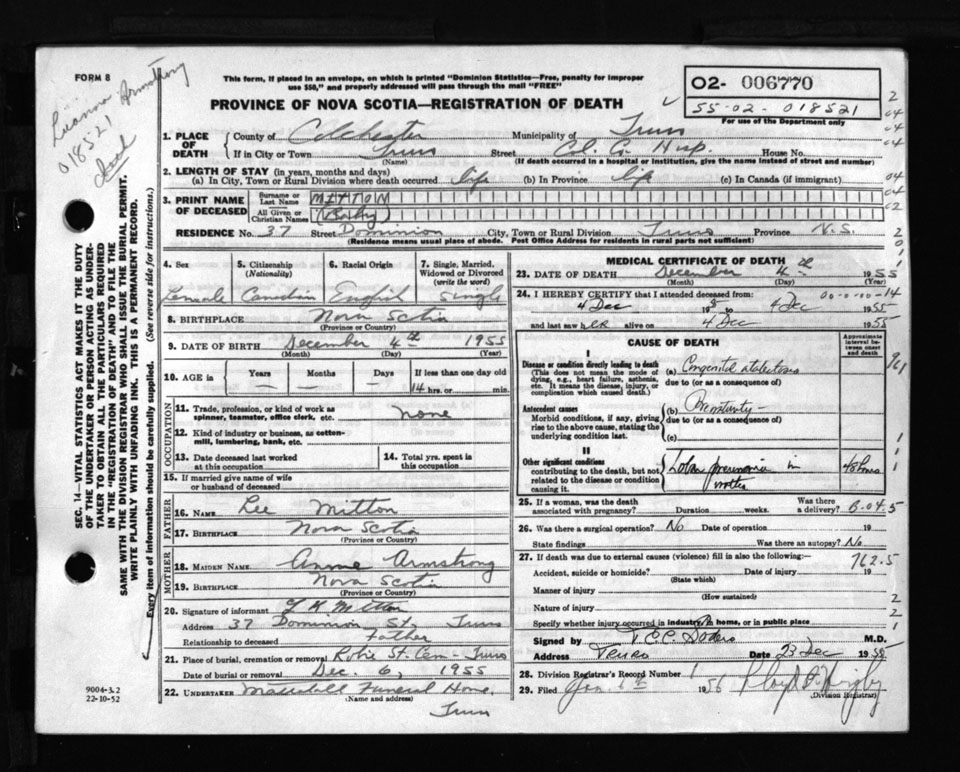 FORM 8
Luanna Armstrong
018521
Dead
This form, if placed in an envelope, on which is printed "Dominion Statistics—Free, penalty for improper
use $50," and properly addressed will pass through the mail "FREE"
PROVINCE OF NOVA SCOTIA—REGISTRATION OF DEATH
02- 006770
55-02-018521
For use of the Department only
1. PLACE OF DEATH County of Colchester Municipality of Truro
If in City or Town Truro Street Col. Co. Hosp. House No.
(Name) (If death occurred in a hospital or institution, give the name instead of street and number)
2. LENGTH OF STAY (in years, months and days)
(a) In City, Town or Rural Division where death occurred life (b) In Province life (c) In Canada (if immigrant)
3. PRINT NAME OF DECEASED Surname or Last Name MITTON
All Given or Christian Names (Baby)
RESIDENCE No. 37 Street Dominion City, Town or Rural Division Truro Province N.S.
(Residence means usual place of abode. Post Office Address for residents in rural parts not sufficient)
4. Sex 5. Citizenship (Nationality) 6. Racial Origin 7. Single, Married, Widowed or Divorced (write the word)
Female Canadian English Single
8. BIRTHPLACE Nova Scotia
(Province or Country)
9. DATE OF BIRTH December 4th 1955
(Month) (Day) (Year)
10. AGE in Years Months Days If less than one day old
14 hrs. or min.
OCCUPATION
11. Trade, profession, or kind of work as spinner, teamster, office clerk, etc. none
12. Kind of industry or business, as cotton-mill, lumbering, bank, etc.
13. Date deceased last worked at this occupation 14. Total yrs. spent in this occupation
15. If married give name of wife or husband of deceased
FATHER
16. NAME Lee Mitton
17. BIRTHPLACE Nova Scotia
(Province or Country)
MOTHER
18. MAIDEN NAME Annie Armstrong
19. BIRTHPLACE Nova Scotia
(Province or Country)
20. Signature of informant L K Mitton
Address 37 Dominion St. Truro
Relationship to deceased Father
21. Place of burial, cremation or removal Robie St. Cem - Truro
Date of burial or removal Dec. 6, 1955
22. UNDERTAKER Mattatall Funeral Home,
(Name and address)
Truro
MEDICAL CERTIFICATE OF DEATH
23. DATE OF DEATH December 4th 1955
(Month) (Day) (Year)
24. I HEREBY CERTIFY that I attended deceased from: 00-0-00-14
4 Dec 19 to 4 Dec 1955
and last saw her alive on 4 Dec 1955
CAUSE OF DEATH
Approximate interval between onset and death
I
Disease or condition directly leading to death
(This does not mean the mode of dying, e.g., heart failure, asthenia, etc. It means the disease, injury, or complication which caused death.)
(a) Congenital atelectasis
due to (or as a consequence of)
Antecedent causes
Morbid conditions, if any, giving rise to the above cause, stating the underlying condition last.
(b) Prematurity
due to (or as a consequence of)
(c)
II
Other significant conditions
contributing to the death, but not related to the disease or condition causing it.
Lobar pneumonia in mother 48 hours
25. If a woman, was the death associated with pregnancy? Duration weeks. Was there a delivery? B-04-5
26. Was there a surgical operation? No Date of operation 19
State findings Was there an autopsy? No
27. If death was due to external causes (violence) fill in also the following:— 762.5
Accident, suicide or homicide? Date of injury 19
(State which)
Manner of injury
(How sustained)
Nature of injury
Specify whether injury occurred in industry, in home, or in public place
Signed by M.D.
Address Truro Date 23 Dec 1955
28. Division Registrar's Record Number 1
29. Filed Jan 1956
(Division Registrar)
SEC. 14—VITAL STATISTICS ACT MAKES IT THE DUTY
OF THE UNDERTAKER OR PERSON ACTING AS UNDER-
TAKER TO OBTAIN ALL THE PARTICULARS REQUIRED
IN THE "REGISTRATION OF DEATH" AND TO FILE THE
SAME WITH THE DIVISION REGISTRAR WHO SHALL ISSUE THE BURIAL PERMIT.
WRITE PLAINLY WITH UNFADING INK. THIS IS A PERMANENT RECORD.
Every item of information should be carefully supplied. (See reverse side for instructions.)
9004-3.2
22-10-52